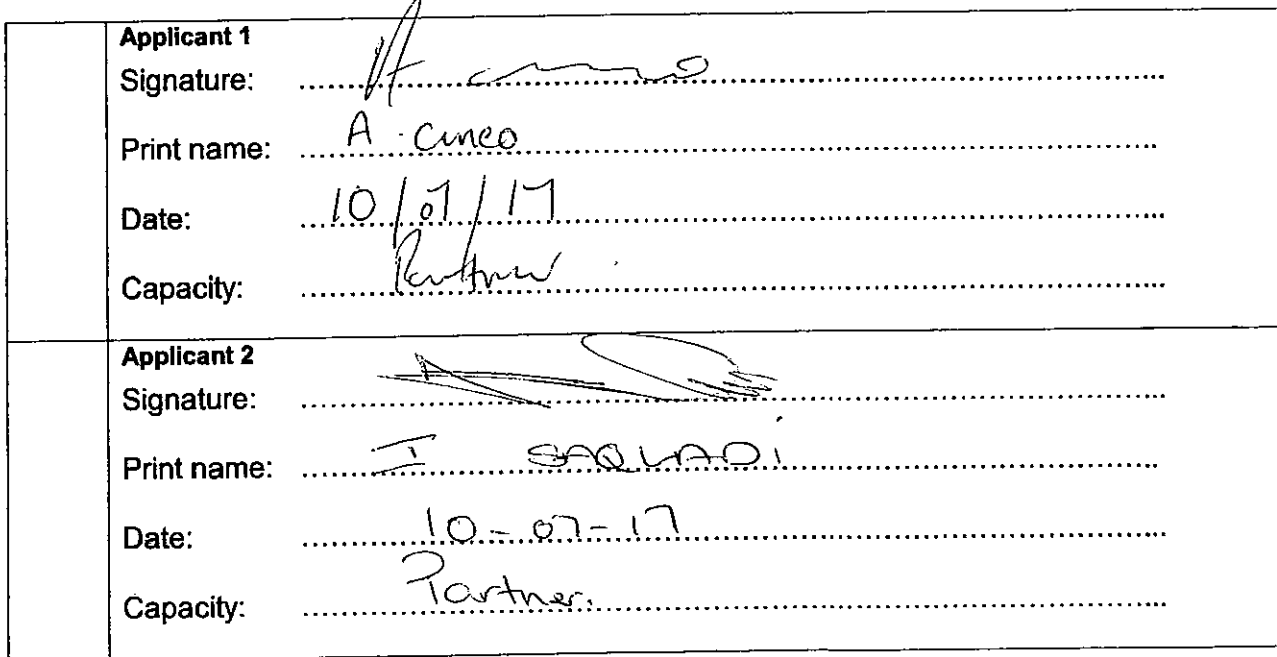 Applicant 1
Signature:
Print name: A. Cuneo
Date: 10/07/17
Capacity: Partner
Applicant 2
Signature:
Print name: I SAQLADI
Date: 10-07-17
Capacity: Partner.